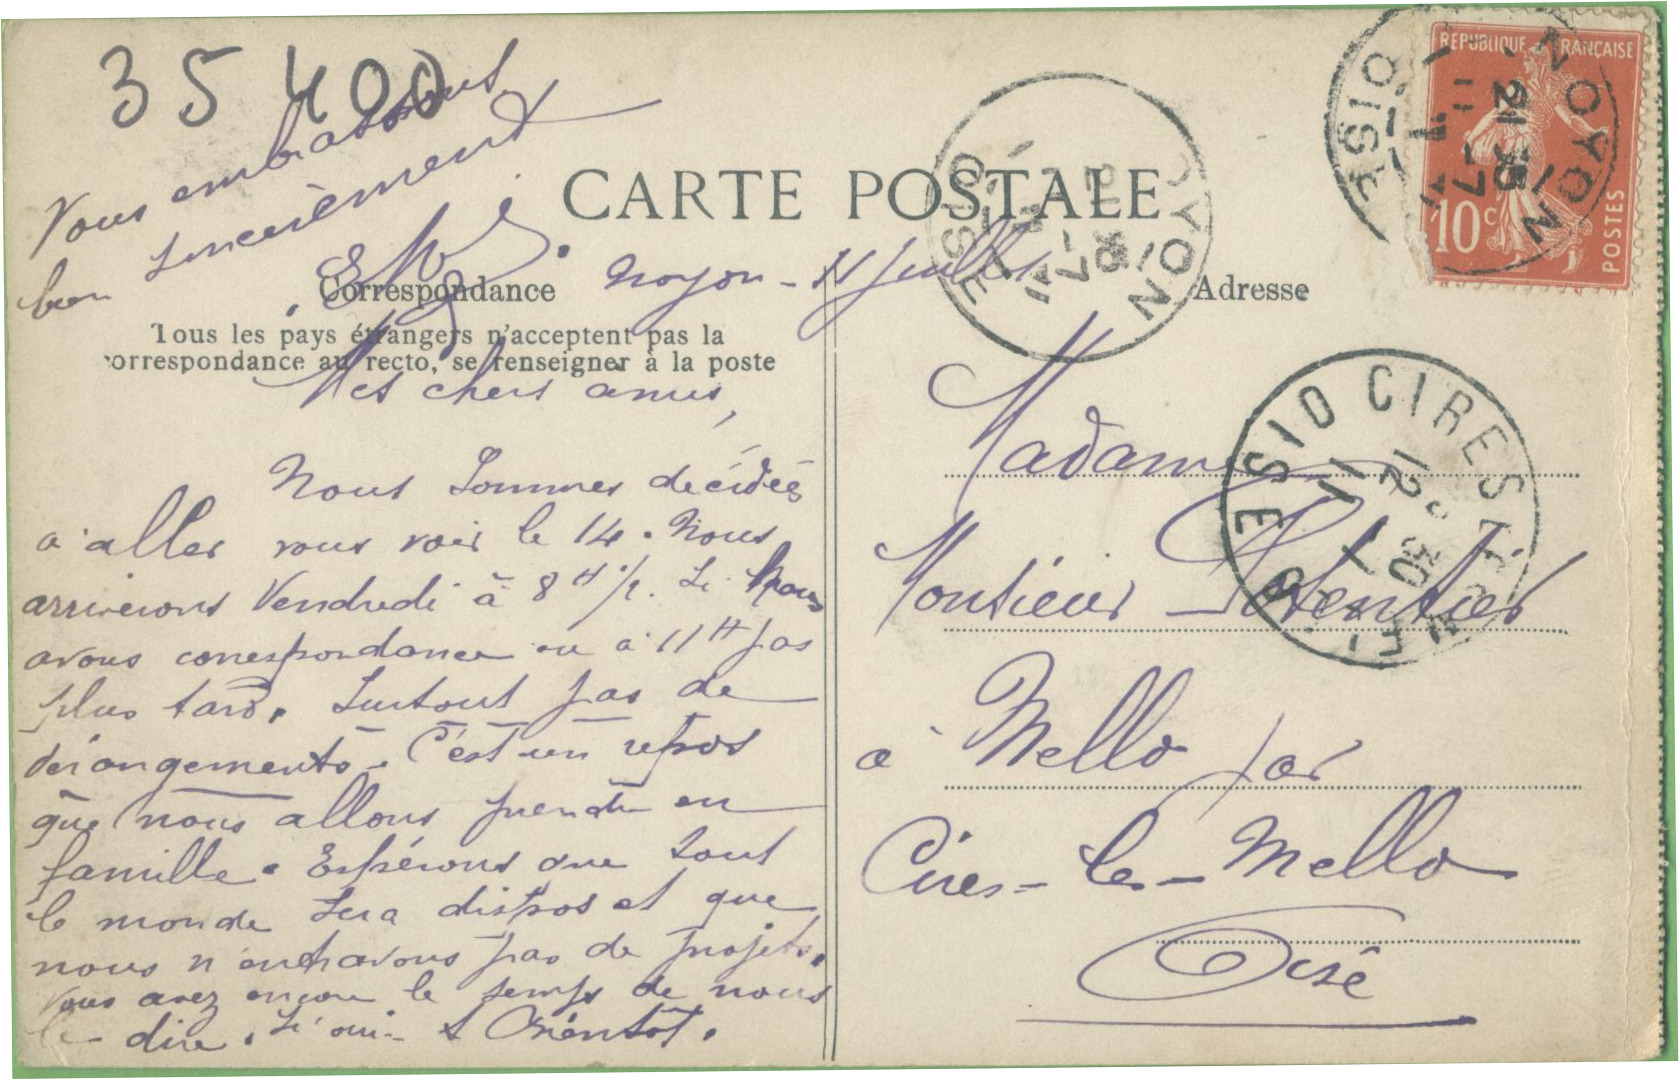 35 400
Vous embrassons
bien sincèrement
CARTE POSTALE
Correspondance
Noyon - 11 Juillet
Tous les pays étrangers n'acceptent pas la
correspondance au recto, se renseigner à la poste
Mes chers amis,
Nous sommes décidés
à aller vous voir le 14. Nous
arriverons Vendredi à 8 H 1/2. Si Nous
avons correspondance ou à 11 H pas
plus tard. Surtout pas de
dérangements. C'est un repos
que nous allons prendre en
famille. Espérons que tout
le monde sera dispos et que
nous n'entravons pas de projets.
Vous avez encore le temps de nous
le dire. Si oui - à Bientôt.
REPUBLIQUE FRANÇAISE
10 c
POSTES
NOYON
OISE
21 35
11 -7
11
NOYON
OISE
Adresse
Madame
Monsieur
à Mello par
Cires-les-Mello
Oise
CIRES LES MELLO
OISE
12 30
11
7